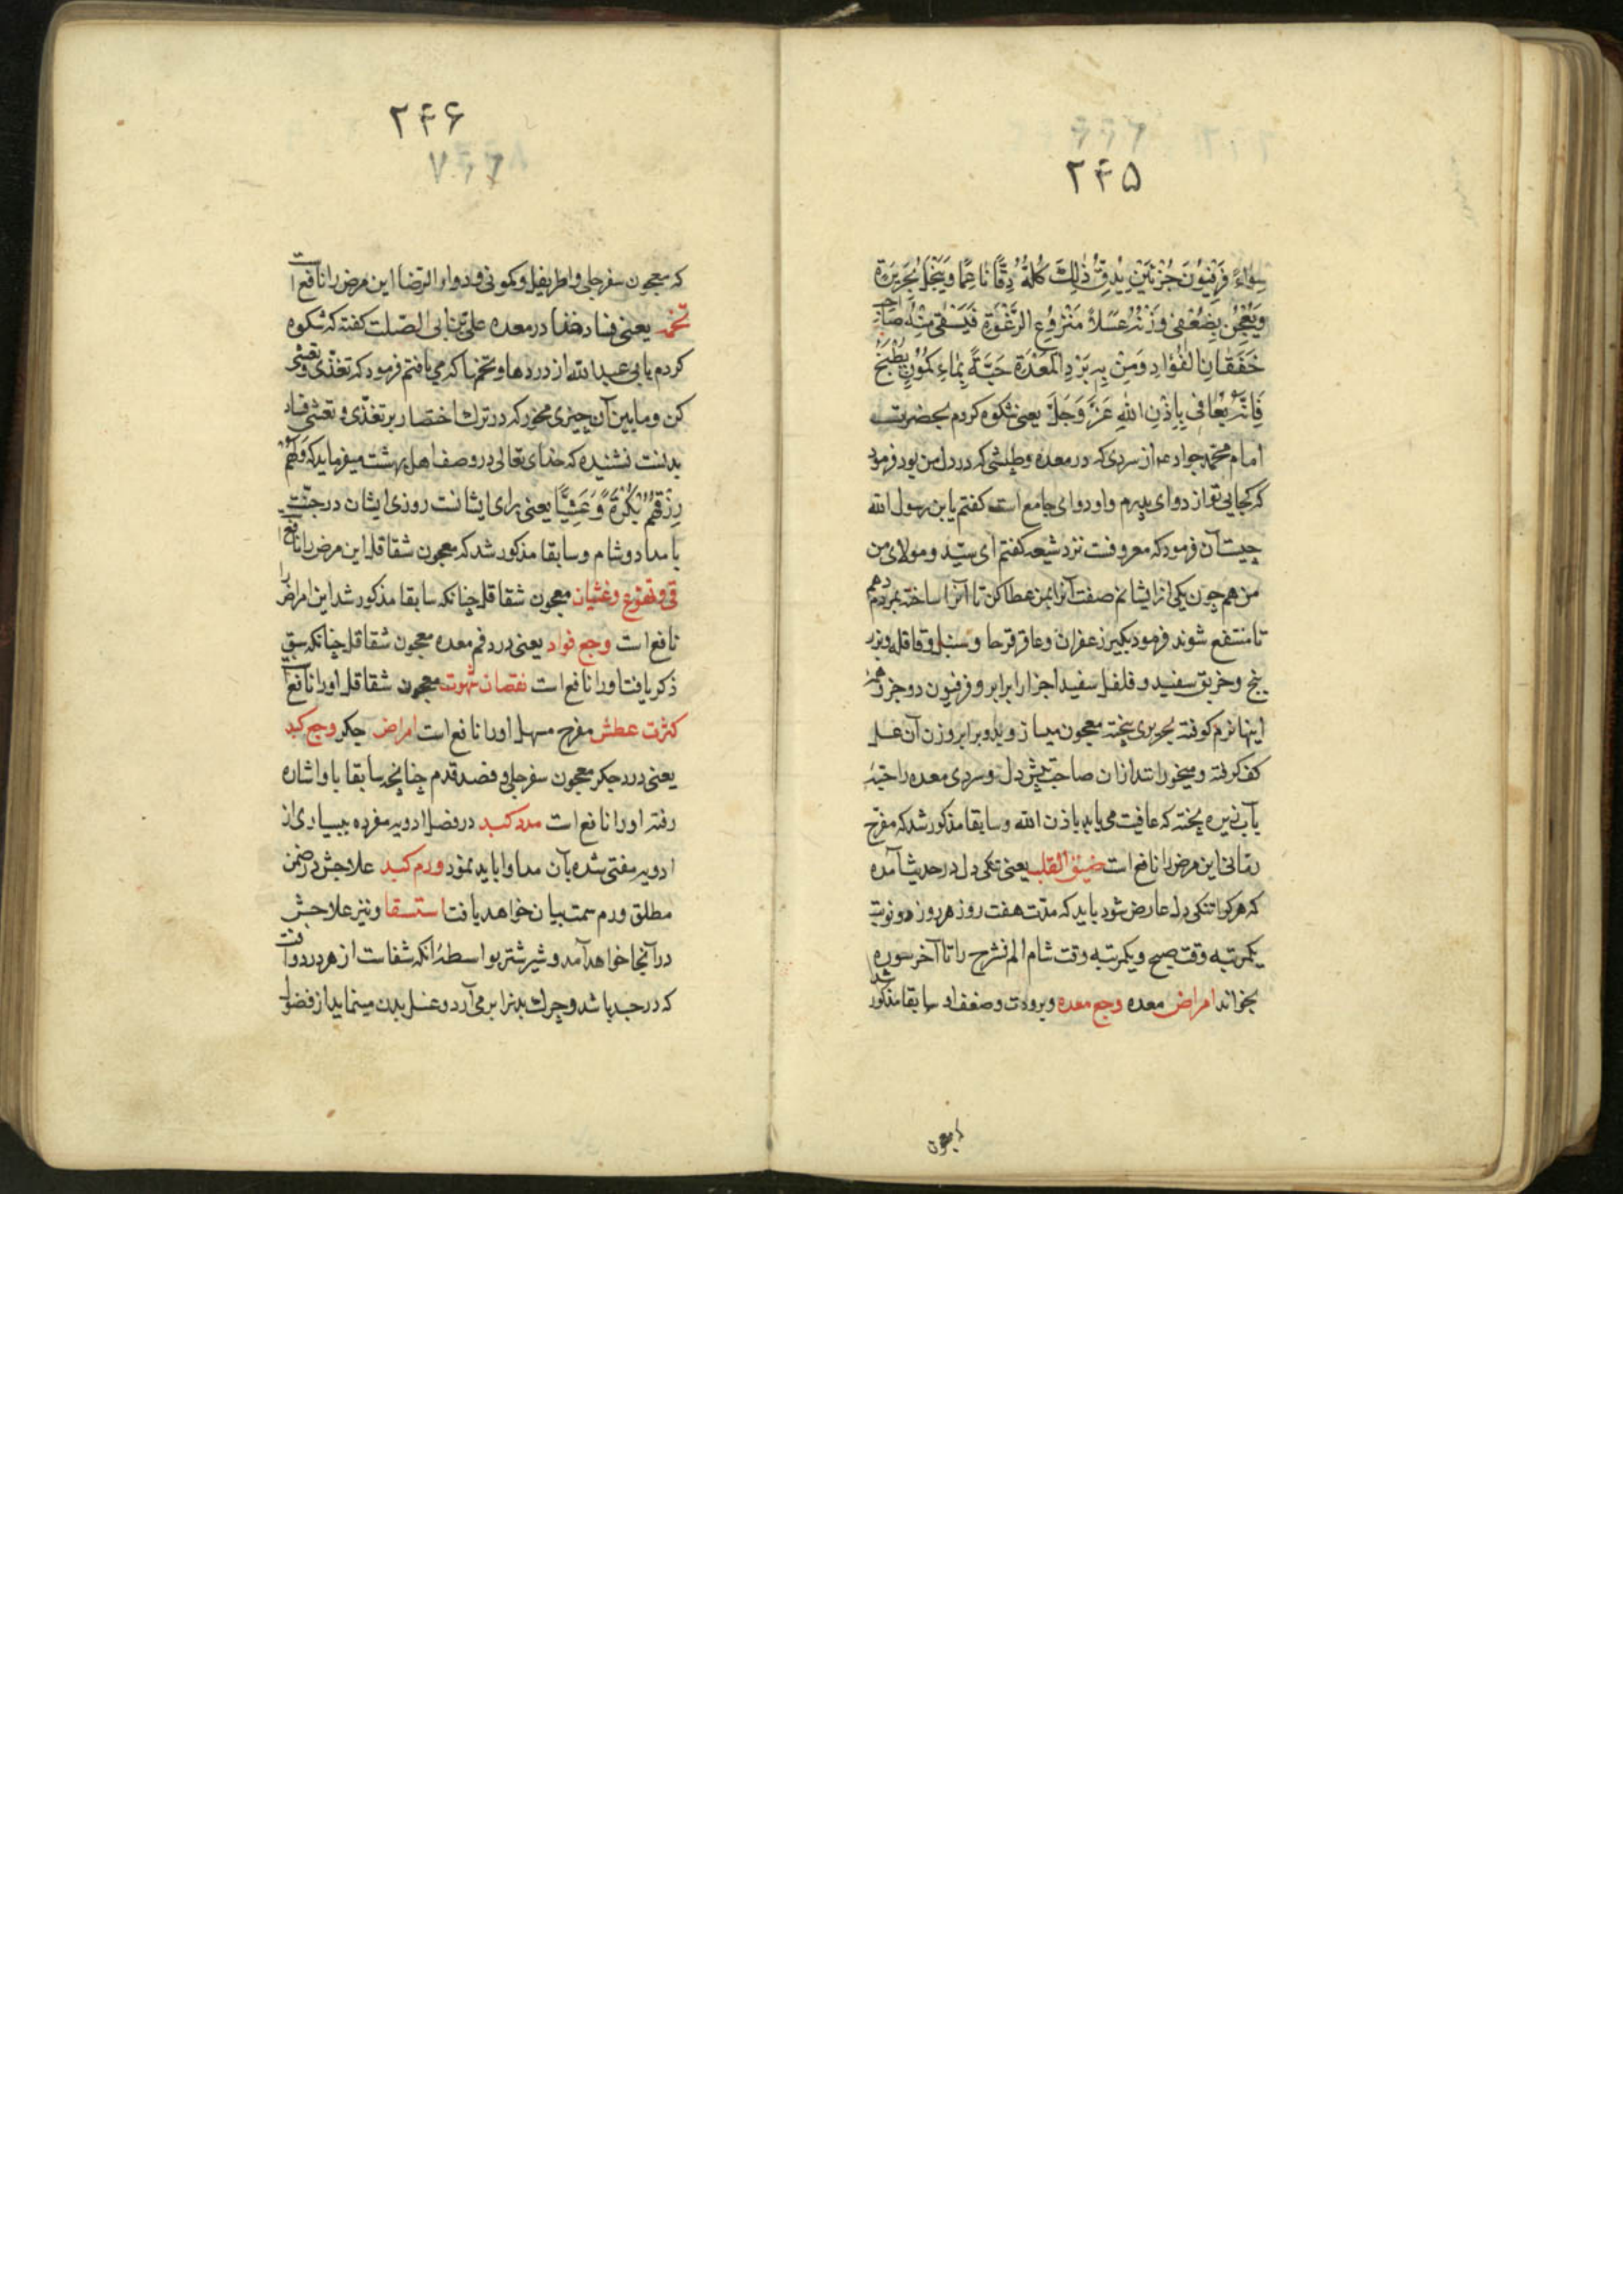 ۲۴۵
سواءً فَرَفیُونَ جُزْئَیْنِ یُدَقُّ ذٰلِكَ کُلُّهُ دَقًّا نَاعِمًا وَیُنْخَلُ بِحَرِیرَةٍ
وَیُعْجَنُ بِضِعْفَیْ وَزْنِهِ عَسَلاً مَنْزُوعِ الرَّغْوَةِ فَیُسْقٰی مِنْهُ صَاحِبُ
خَفَقَانِ الفُؤادِ وَمَنْ بِهِ بَرْدُ المَعْدَةِ حَبَّةً بِمَاءِ کَمُّونٍ یُطْبَخُ
فَاِنَّهُ یُعَافٰی بِاِذْنِ اللهِ عَزَّ وَجَلَّ یعنی شکوه کردم بحضرت
امام محمد جواد ع از سردی که در معده وطپشی که در دل من بود فرمود
که کجایی تو از دوای پدرم و او دوای جامع است کفتم یابن رسول الله
چیست آن فرمود که معروفست نزد شیعه کفتم ای سیّد و مولای من
من هم چون یکی از ایشانم صفت آنرا بمن عطا کن تا آنرا ساخته بمردم دهم
تا منتفع شوند فرمود بکیر زعفران وعاقرقرحا وسنبل وقاقله وبزر
بنج وخربق سفید و فلفل سفید اجزا برابر و فرفیون دو جزو همهٔ
اینها نرم کوفته بحریری بیخته معجون میسازد بدو برابر وزن آن عسل
کف کرفته و میخوراند از ان صاحب طپش دل وسردی معده را حبّهٔ
بآب زیره پخته که عافیت می یابد باذن الله وسابقا مذکور شد که مفرح
رمانی این مرض را نافع است ضیق القلب یعنی تنکی دل در حدیث آمده
که هر کرا تنکی دل عارض شود باید که مدّت هفت روز هر روز دو نوبت
یکمرتبه وقت صبح و یکمرتبه وقت شام الم نشرح را تا آخر سوره
بخواند امراض معده وجع معده وبرودت وضعف او سابقا مذکور شد
که معجون
۲۴۶
که معجون سفرجلی واطریفل وکمونی ودواء الرضا این مرض را نافع است
تخمه یعنی فساد غذا در معده علی بن ابی الصلت کفته که شکوه
کردم بابی عبدالله از دردها وتخمها که می یافتم فرمود که تغذّی وتعشّی
کن و مابین آن چیزی مخور که در ترك اختصار بر تغذّی و تعشّی فساد
بدنست نشنیده که خدای تعالی در وصف اهل بهشت میفرماید که وَلَهُمْ
رِزْقُهُمْ بُکْرَةً وَّعَشِیًّا یعنی برای ایشانست روزی ایشان در جنّت
بامداد وشام وسابقا مذکور شد که معجون شقاقل این مرض را نافع
قی وتهوّع وغثیان معجون شقاقل چنانکه سابقا مذکور شد این امراض را
نافع است وجع فواد یعنی درد فم معده معجون شقاقل چنانکه سبق
ذکر یافت اورا نافع است نقصان شهوت معجون شقاقل اورا نافع است
کثرت عطش مفرح مسهل اورا نافع است امراض جکر وجع کبد
یعنی درد جکر معجون سفرجلی وفصد قدم چنانچه سابقا باو اشاره
رفته اورا نافع است سدد کبد در فصل ادویه مفرده ببسیاری از
ادویه مفتی شده بآن مداوا باید نمود ورم کبد علاجش در ضمن
مطلق ورم سمت بیان خواهد یافت استسقا ونیز علاجش
در آنجا خواهد آمد و شیر شتر بواسطهٔ انکه شفاست از هر درد وآفت
که در جسد باشد وچرك بدنرا بر می آرد وغسل بدن مینماید از فضول